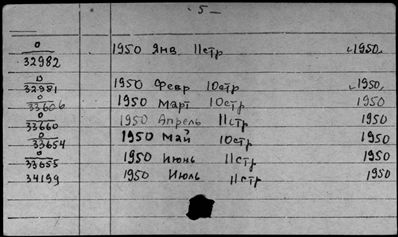 - 5 -
0
32982 1950 Янв. 11стр 1950.
0
32981 1950 Февр 10стр 1950.
0
33606 1950 Март 10стр 1950
0
33660 1950 Апрель 11стр 1950
0
33654 1950 Май 10стр 1950
0
33655 1950 Июнь 11стр 1950
34199 1950 Июль 11стр 1950